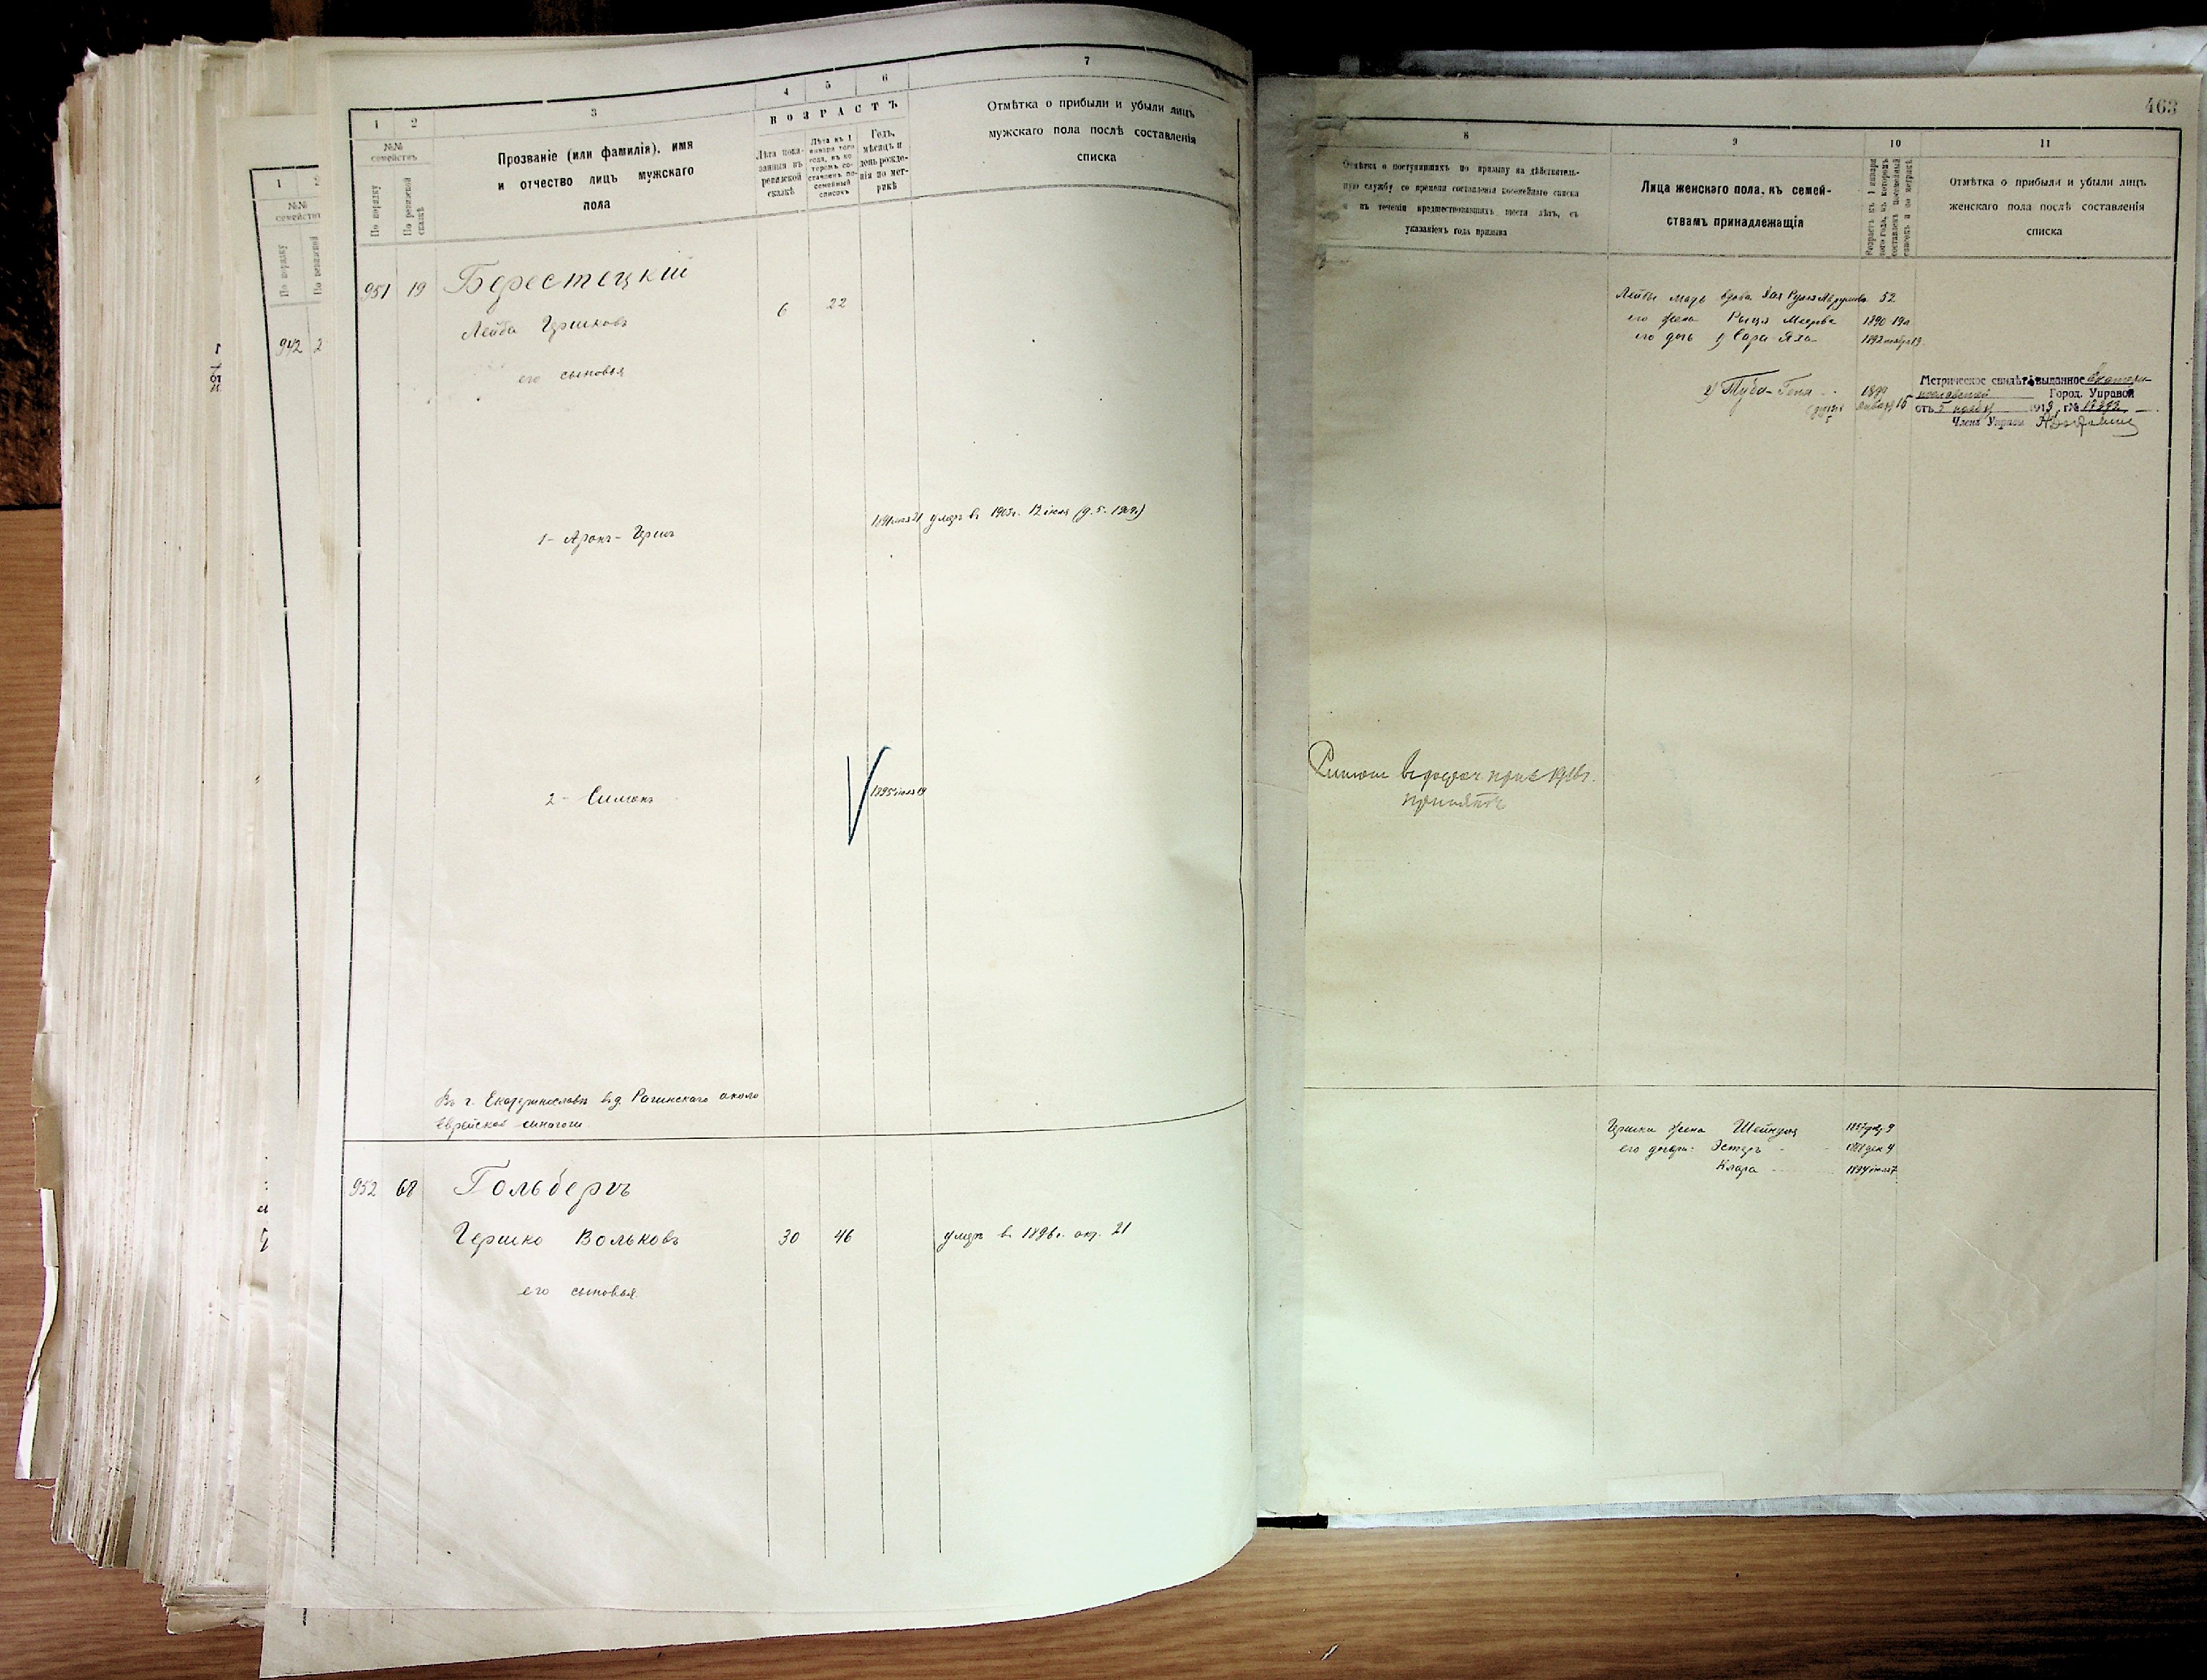 463
1 2 3 4 5 6 7
№№ семействъ
По порядку
По ревизской сказкѣ
Прозваніе (или фамилія), имя
и отчество лицъ мужскаго
пола
ВОЗРАСТЪ
Лѣта пока-
занныя въ
ревизской
сказкѣ
Лѣта къ 1
января того
года, въ ко-
торомъ со-
ставленъ по-
семейный
списокъ
Годъ,
мѣсяцъ и
день рожде-
нія по мет-
рикѣ
Отмѣтка о прибыли и убыли лицъ
мужскаго пола послѣ составленія
списка
8 9 10 11
Отмѣтка о поступившихъ по призыву на дѣйствитель-
ную службу со времени составленія посемейнаго списка
и въ теченіи предшествовавшихъ шести лѣтъ, съ
указаніемъ года призыва
Лица женскаго пола, къ семей-
ствамъ принадлежащія
Возрастъ къ 1 января
того года, въ которомъ
составленъ посемейный
списокъ и по метрикѣ
Отмѣтка о прибыли и убыли лицъ
женскаго пола послѣ составленія
списка
1
№№
семействъ
По порядку
По ревизской
942 2
951 19 Берестецкій
Лейба Гершковъ 6 22
его сыновья
1 - Аронъ - Гершъ 1891 мая 21 умеръ въ 1905 г. 12
2 - Симонъ 1895
Въ г. Екатеринославѣ в д. Рагинскаго около
Еврейской синагоги
952 68 Гольбергъ
Гершко Вольковъ 30 46 умеръ въ 1896 г. окт. 21
его сыновья
Лейбы мать вдова Хая 52
его жена Рыся Меерова 1890 19
его дочь 1) Сара 1892 ноября 19
2) Туба-Геня 1899
января 15
Метрическое свидѣт. выданное Екатери-
нославской Город. Управой
отъ 5 1913 г. №
Членъ Управы
Симонъ
принятъ
Гершки жена Шейндля 1857
его дочери: Эстеръ дек 4
Клара 1894